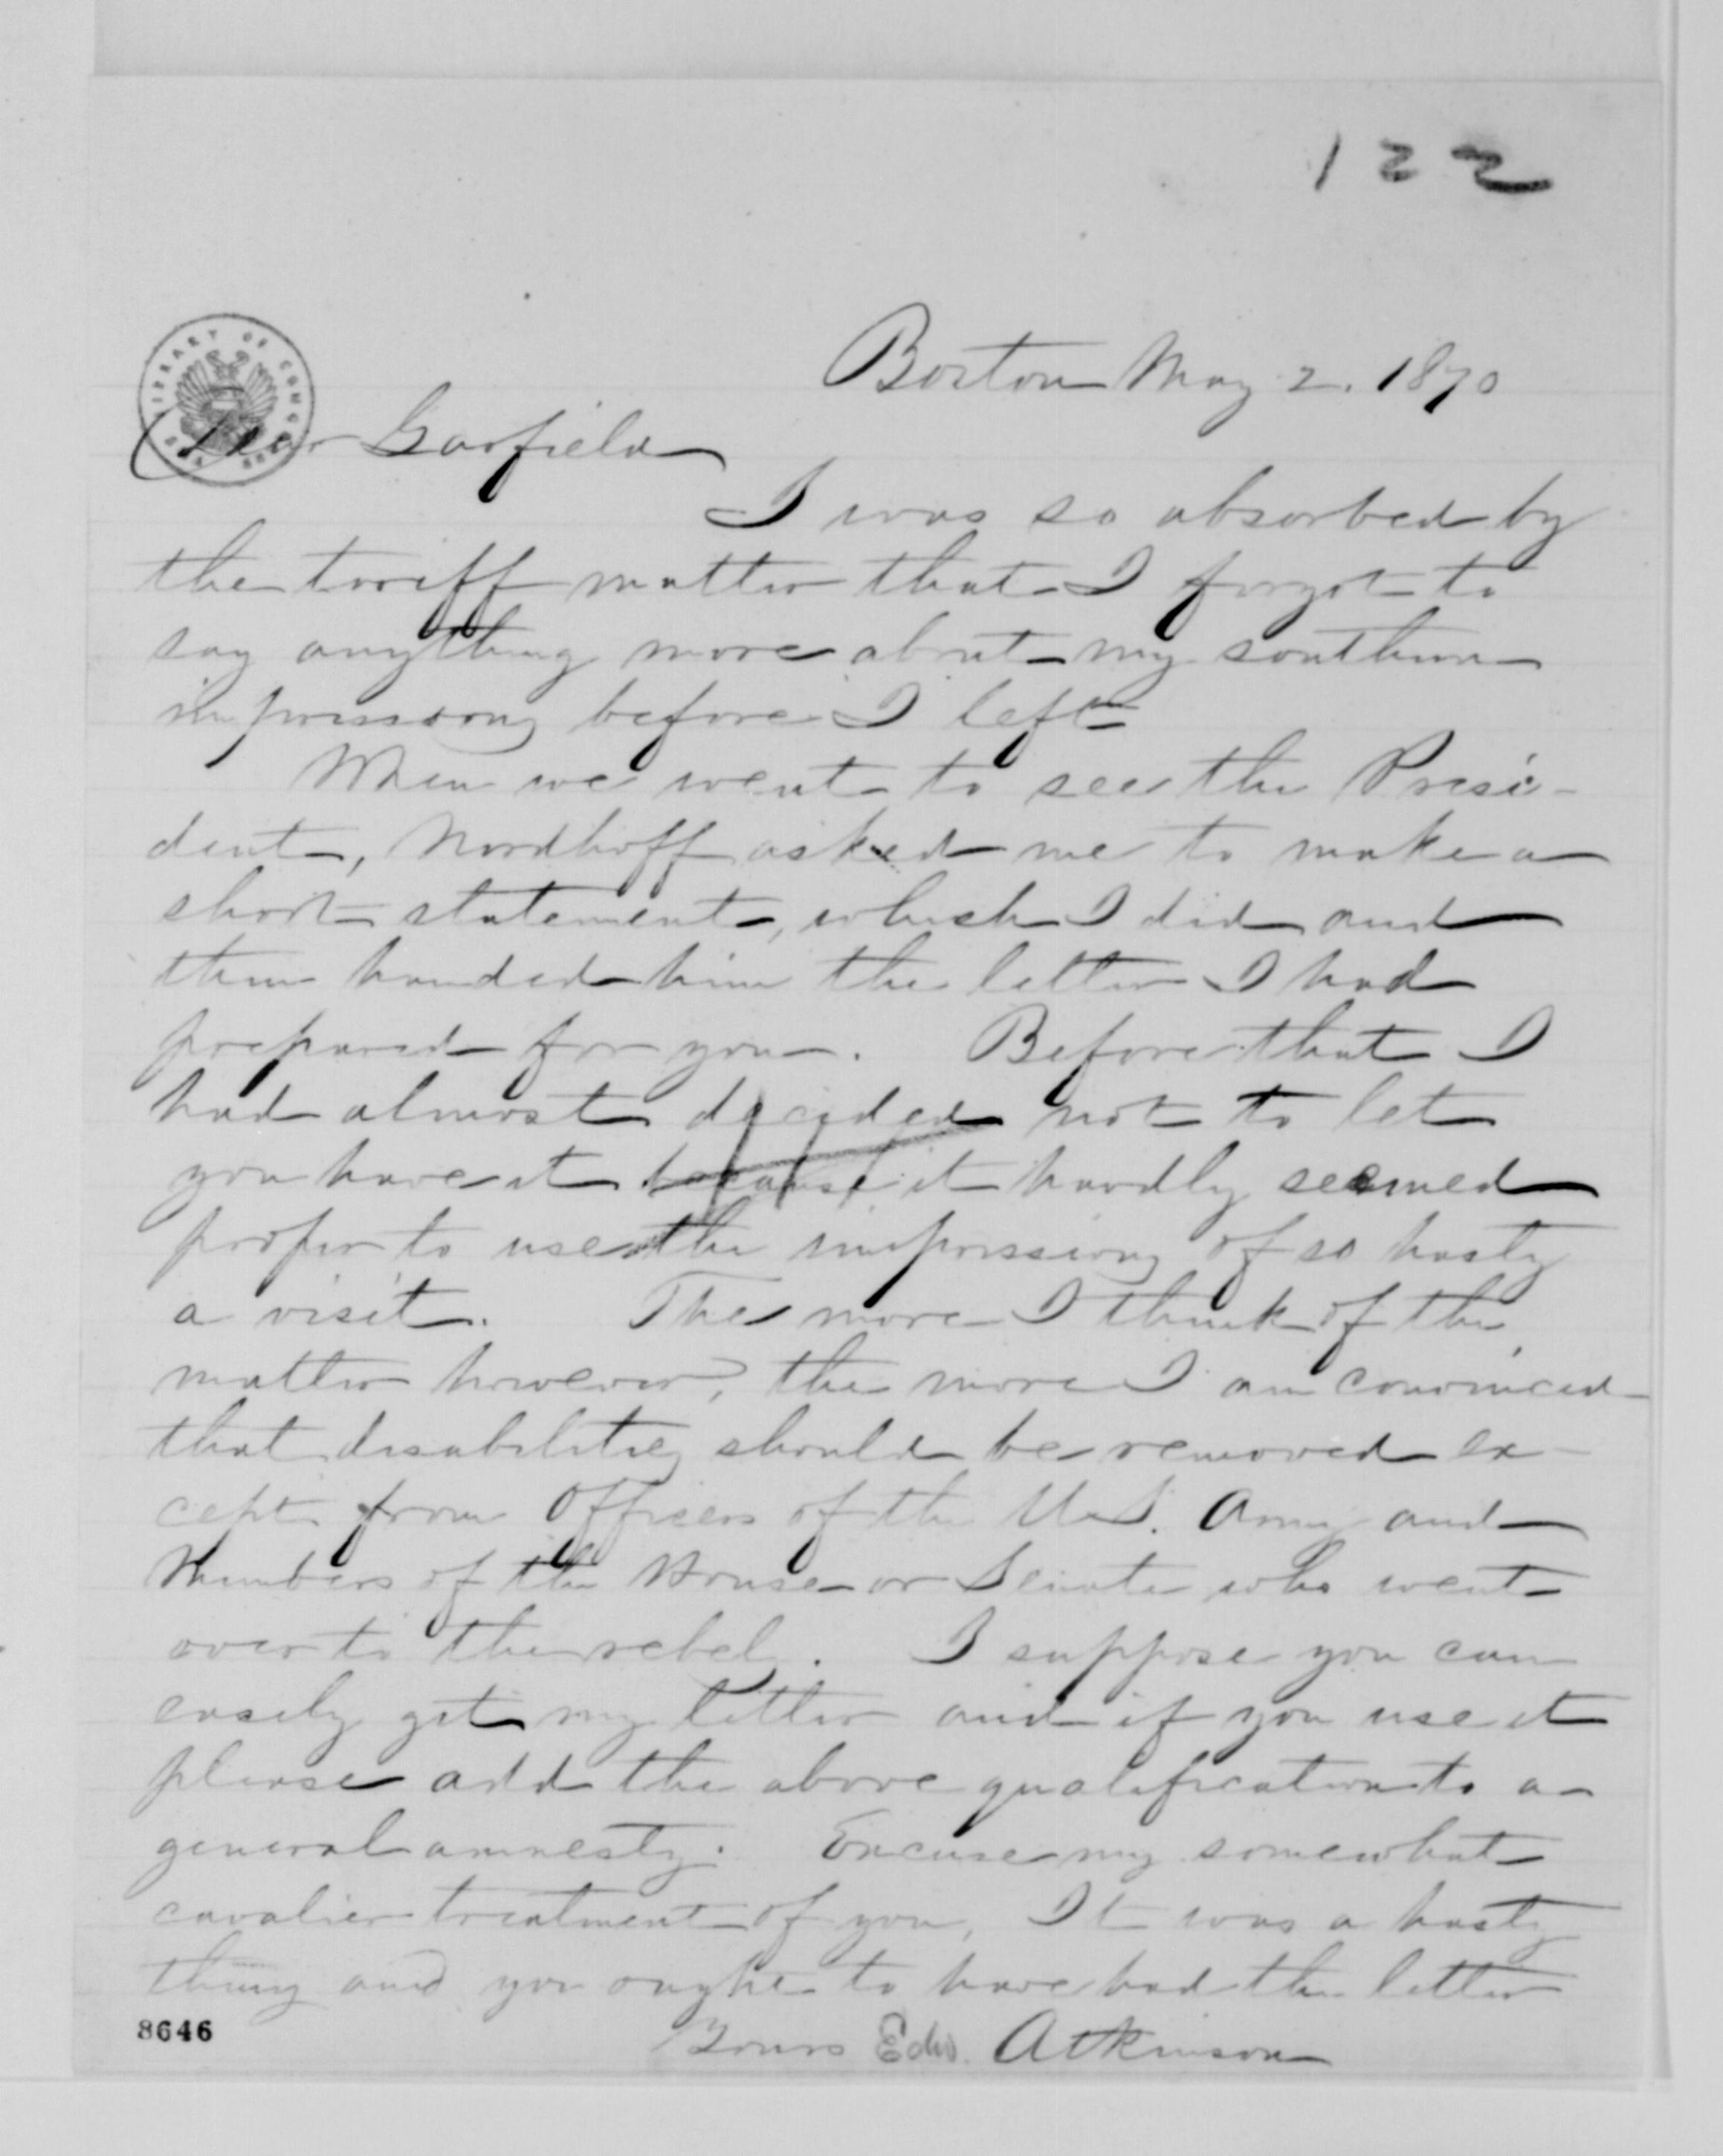 122
Boston May 2. 1870
LIBRARY OF CONGRESS
Dear Garfield
I was so absorbed by
the tariff matter that I forgot to
say anything more about my southern
impressions before I left
When we went to see the Presi-
dent, Nordhoff asked me to make a
short statement, which I did and
then handed him the letter I had
prepared for you. Before that I
had almost decided not to let
you have it because it hardly seemed
proper to use the impressions of so hasty
a visit. The more I think of the
matter however, the more I am convinced
that disabilities should be removed ex-
cept from Officers of the U.S. Army and
Members of the House or Senate who went
over to the rebels. I suppose you can
easily get my letter and if you use it
please add the above qualification to a
general amnesty. Excuse my somewhat
cavalier treatment of you, It was a hasty
thing and you ought to have had the letter
Yours Edw. Atkinson
8646